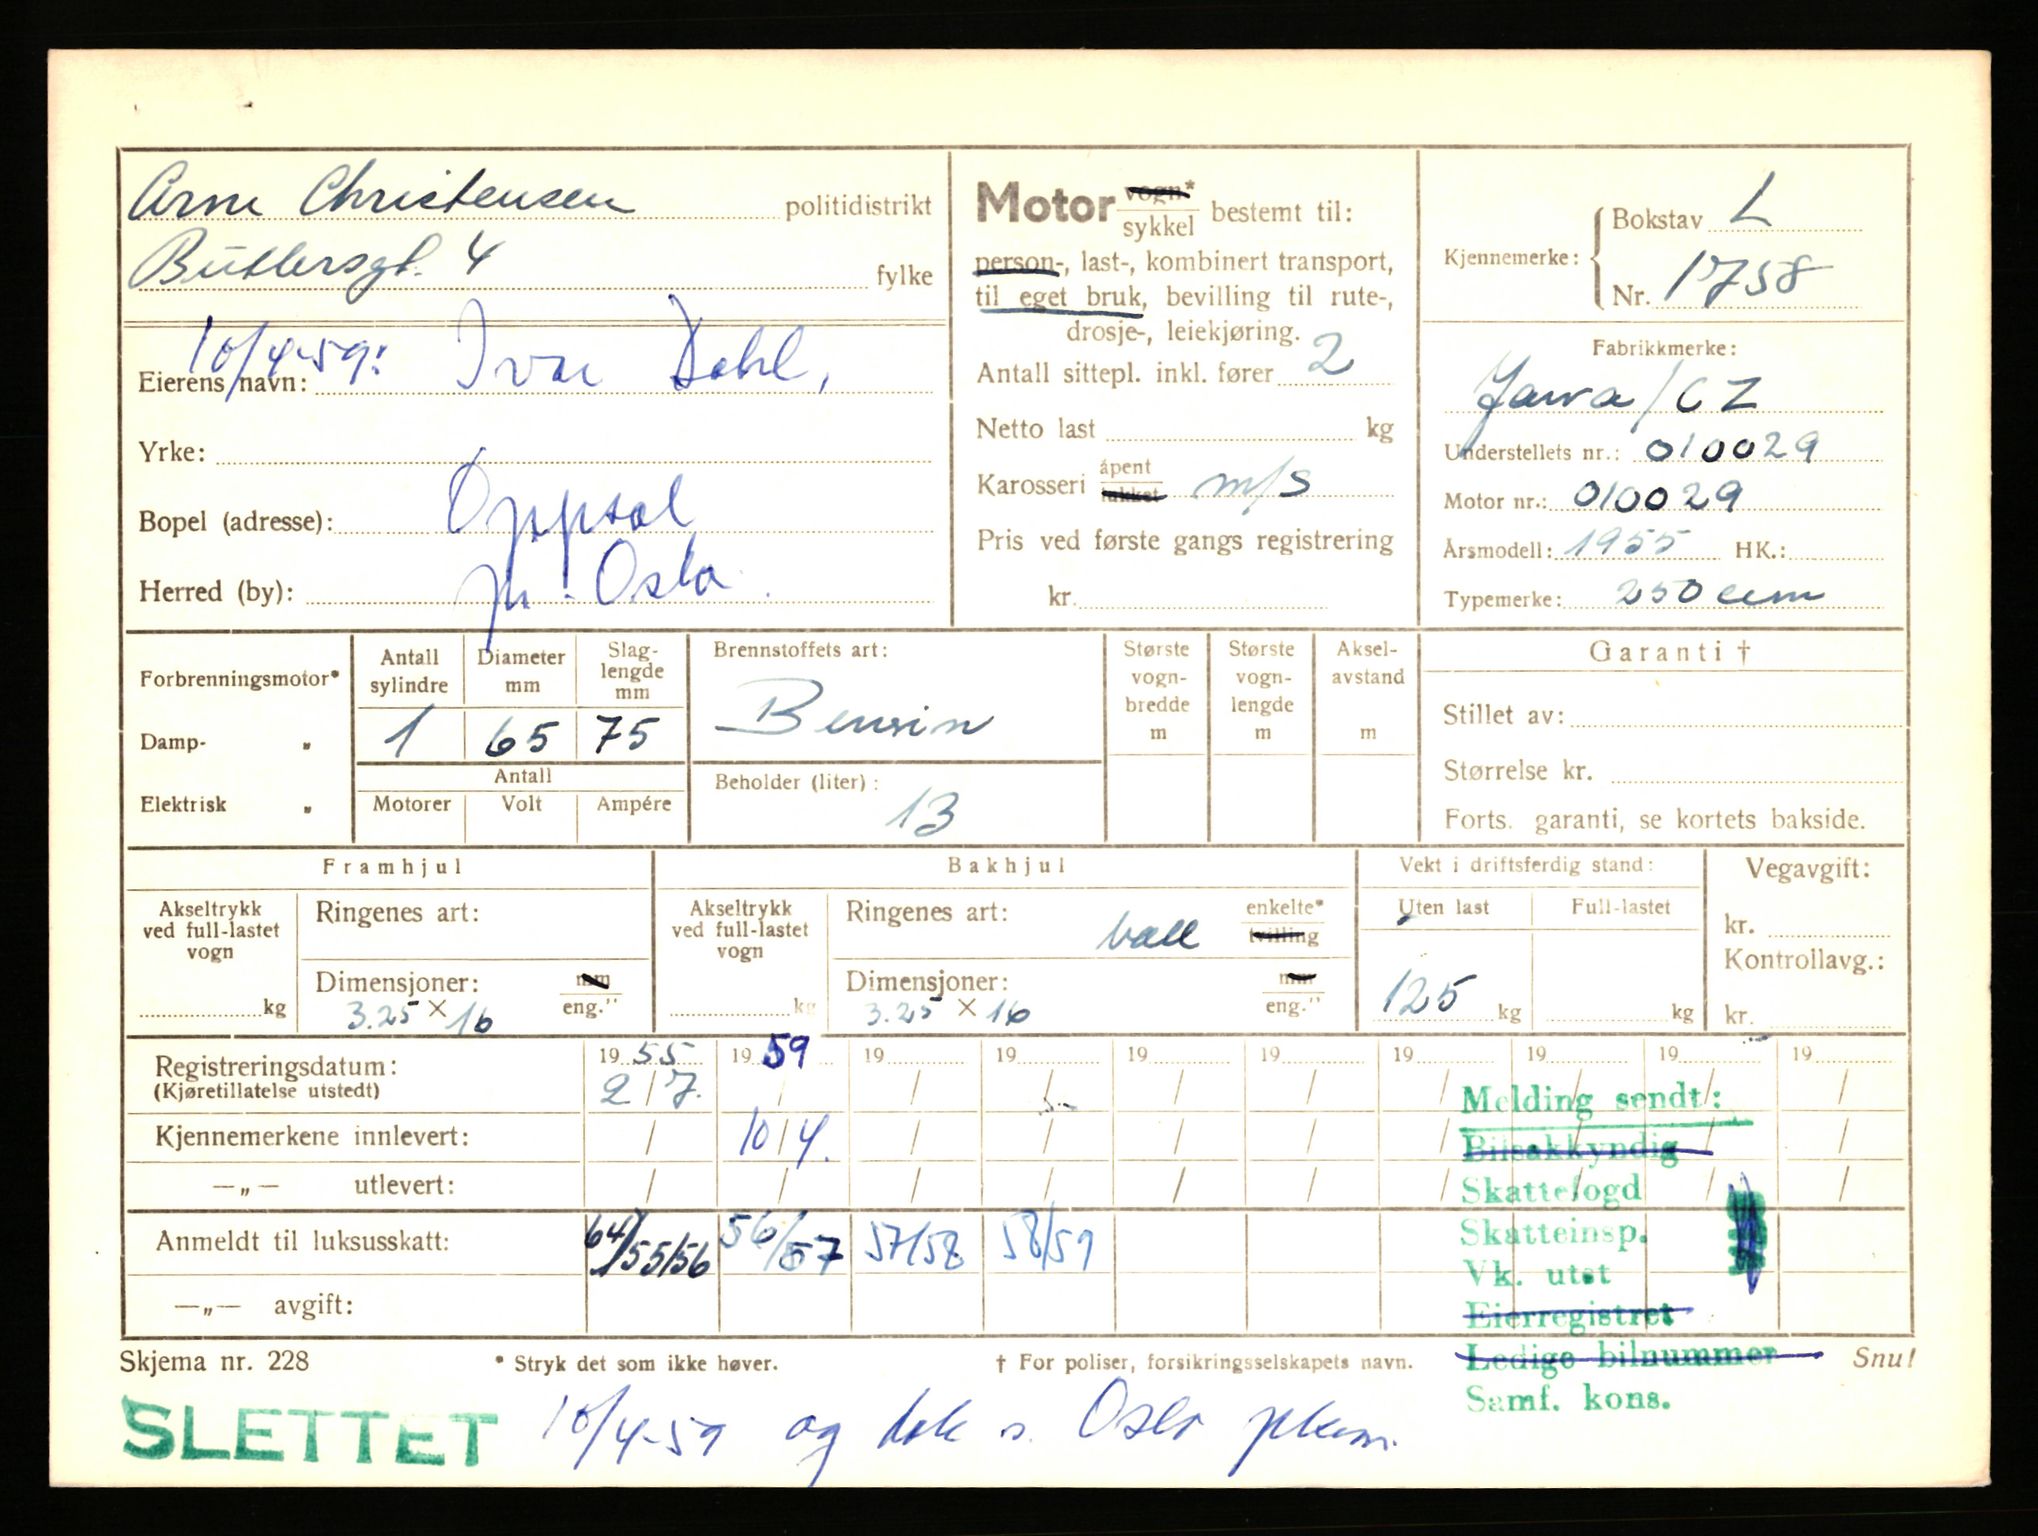 Arne Christensen politidistrikt
Butlersgt. 4 fylke
10/4-59: Ivar Dahl,
Eierens navn:
Yrke:
Bopel (adresse): Oppsal
Herred (by): pr. Oslo.
Motor vogn* / sykkel bestemt til:
person-, last-, kombinert transport,
til eget bruk, bevilling til rute-,
drosje-, leiekjøring.
Antall sittepl. inkl. fører 2
Netto last kg
Karosseri åpent / lukket m/s
Pris ved første gangs registrering
kr.
Kjennemerke: Bokstav L
Nr. 1758
Fabrikkmerke:
Jawa/CZ
Understellets nr.: 010029
Motor nr.: 010029
Årsmodell: 1955 HK.:
Typemerke: 250 ccm
Forbrenningsmotor*
Damp- „
Elektrisk „
Antall sylindre Diameter mm Slag-lengde mm
1 65 75
Antall
Motorer Volt Ampére
Brennstoffets art:
Bensin
Beholder (liter):
13
Største vogn-bredde m
Største vogn-lengde m
Aksel-avstand m
Garanti †
Stillet av:
Størrelse kr.
Forts. garanti, se kortets bakside.
Framhjul
Akseltrykk ved full-lastet vogn
kg
Ringenes art:
Dimensjoner: mm / eng."
3.25 × 16
Bakhjul
Akseltrykk ved full-lastet vogn
kg
Ringenes art: ball enkelte* / tvilling
Dimensjoner: mm / eng."
3.25 × 16
Vekt i driftsferdig stand:
Uten last Full-lastet
125 kg kg
Vegavgift:
kr.
Kontrollavg.:
kr.
Registreringsdatum: 1955 1959 19 19 19 19 19 19 19 19
(Kjøretillatelse utstedt) 2/7. / / / / / / / / /
Kjennemerkene innlevert: / 10/4. / / / / / / / /
—„— utlevert: / / / / / / / / / /
Anmeldt til luksusskatt: 64/55/56 56/57 57/58 58/59
—„— avgift:
Melding sendt:
Bilsakkyndig
Skattefogd
Skatteinsp.
Vk. utst
Eierregistret
Ledige bilnummer
Samf. kons.
Skjema nr. 228 * Stryk det som ikke høver. † For poliser, forsikringsselskapets navn. Snu!
SLETTET 10/4-59 og s. Oslo